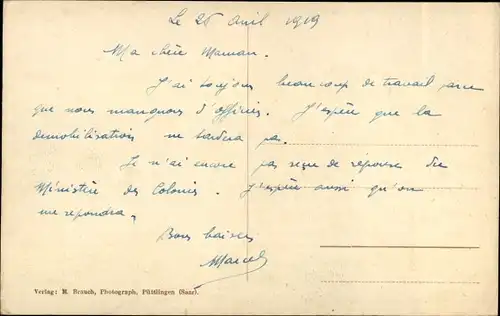 Le 26 Avril 1919
Ma chère Maman.
J'ai toujours beaucoup de travail parce
que nous manquons d'officiers. J'espère que la
démobilisation ne tardera pas.
Je n'ai encore pas reçu de réponse du
Ministère des Colonies. J'espère aussi qu'on
me repondra.
Bons baisers
Marcel
Verlag: M. Brauch, Photograph, Püttlingen (Saar).